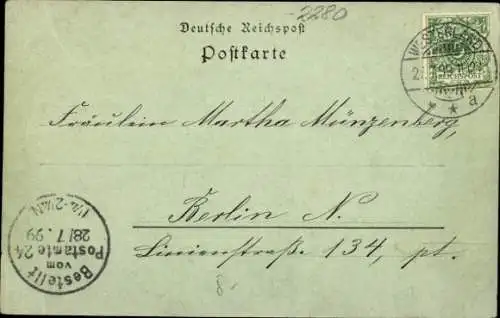 -2280
Deutsche Reichspost
Postkarte
WESTERLAND
99
* * a
REICHSPOST
Fräulein Martha Münzenberg,
Berlin N.
Linienstraße 134, pt.
Bestellt
vom
Postamte 24
28/7. 99
1¼-2½N.
8.